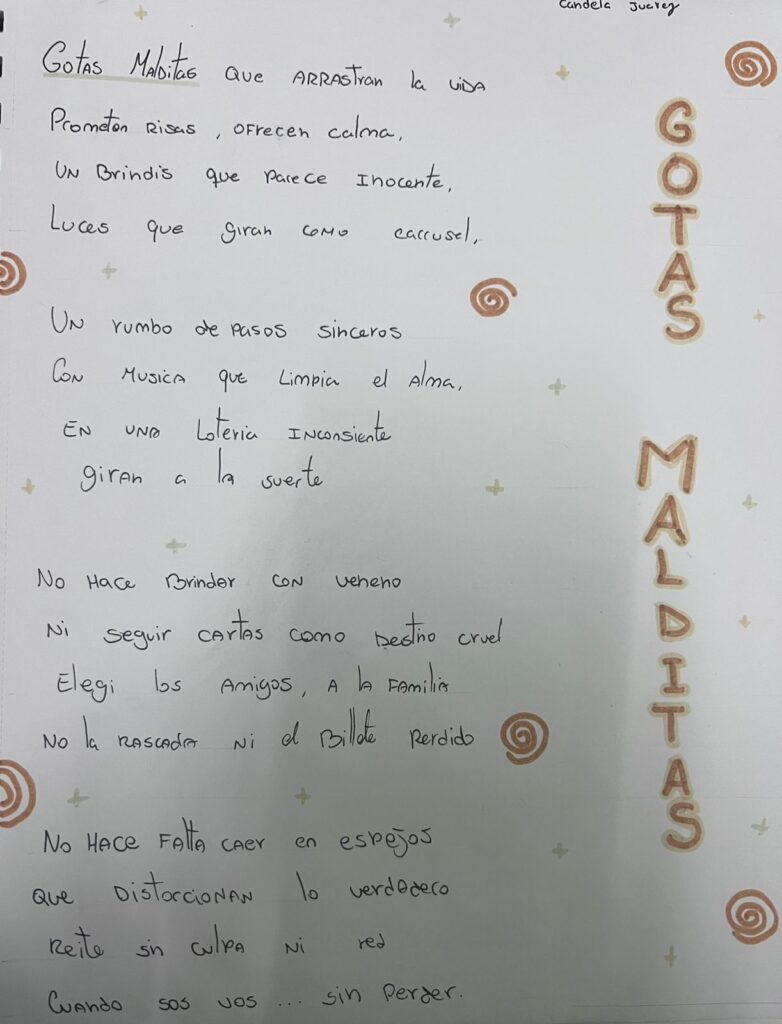 Candela Juarez
Gotas Malditas que arrastran la vida
Prometen risas, ofrecen calma,
Un Brindis que parece inocente,
Luces que giran como carrusel,
Un rumbo de pasos sinceros
Con musica que limpia el alma,
En una loteria inconsiente
giran a la suerte
No hace Brinder con veneno
Ni seguir cartas como destino cruel
Elegi los amigos, a la familia
No la rascada ni el Billete perdido
No hace falta caer en espejos
que distorcionan lo verdadero
Reite sin culpa ni red
Cuando sos vos ... sin perder.
GOTAS MALDITAS